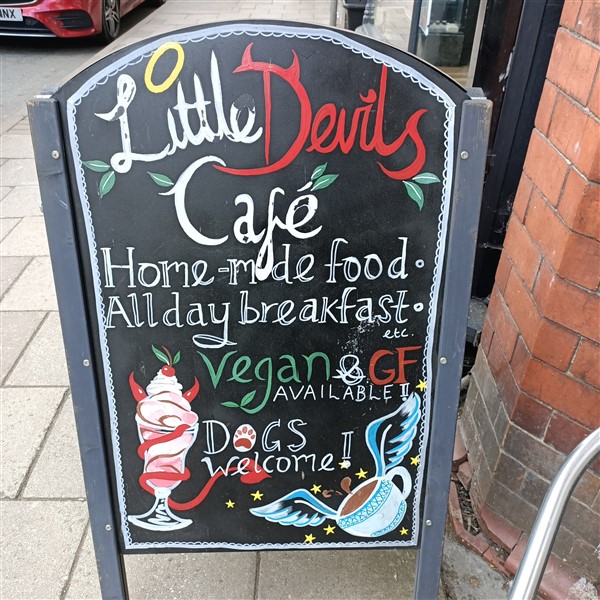 Little Devils
Café
Home-made food.
All day breakfast.
etc.
vegan & GF
AVAILABLE!!
DOGS
welcome!